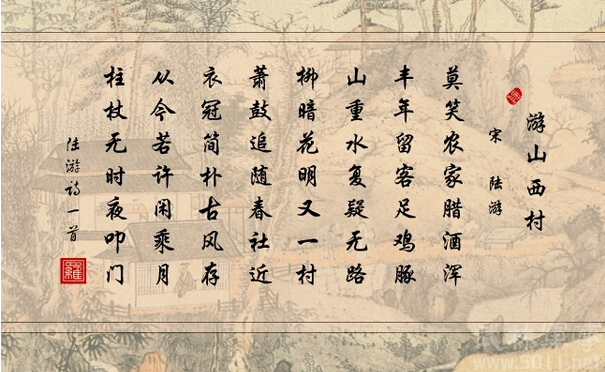 游山西村
宋 陆游
莫笑农家腊酒浑
丰年留客足鸡豚
山重水复疑无路
柳暗花明又一村
萧鼓追随春社近
衣冠简朴古风存
从今若许闲乘月
柱杖无时夜叩门
陆游诗一首
羅